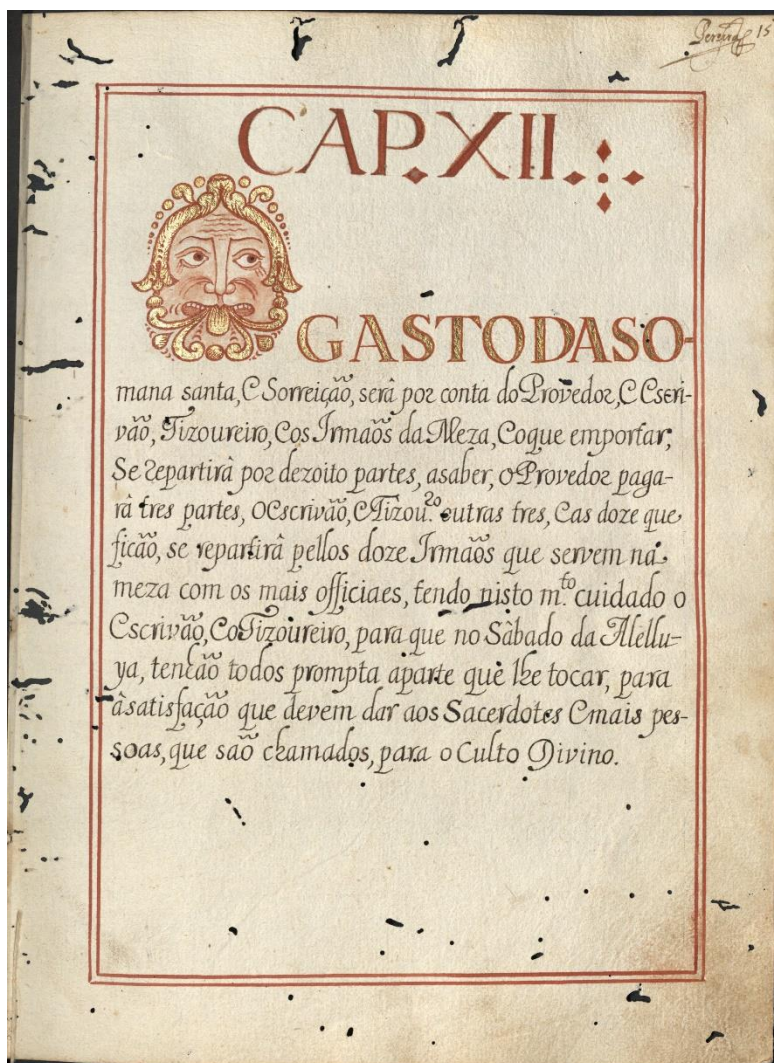 Pereira 15
CAP. XII.
O GASTO DA SO-
mana santa, E Sorreição, serâ por conta do Provedor, E Escri-
vão, Tizoureiro, E os Irmaõs da Meza, E o que emportar,
Se repartirâ por dezoito partes, asaber, o Provedor paga-
râ tres partes, O Escrivão, E Tizou.ro outras tres, E as doze que
ficão, se repartirâ pellos doze Irmaõs que servem na
meza com os mais officiaes, tendo nisto m.to cuidado o
Escrivão, E o Tizoureiro, para que no Sâbado da Allelu-
ya, tenção todos prompta aparte que lhe tocar, para
âsatisfação que devem dar aos Sacerdotes E mais pes-
soas, que saõ chamados, para o Culto Divino.